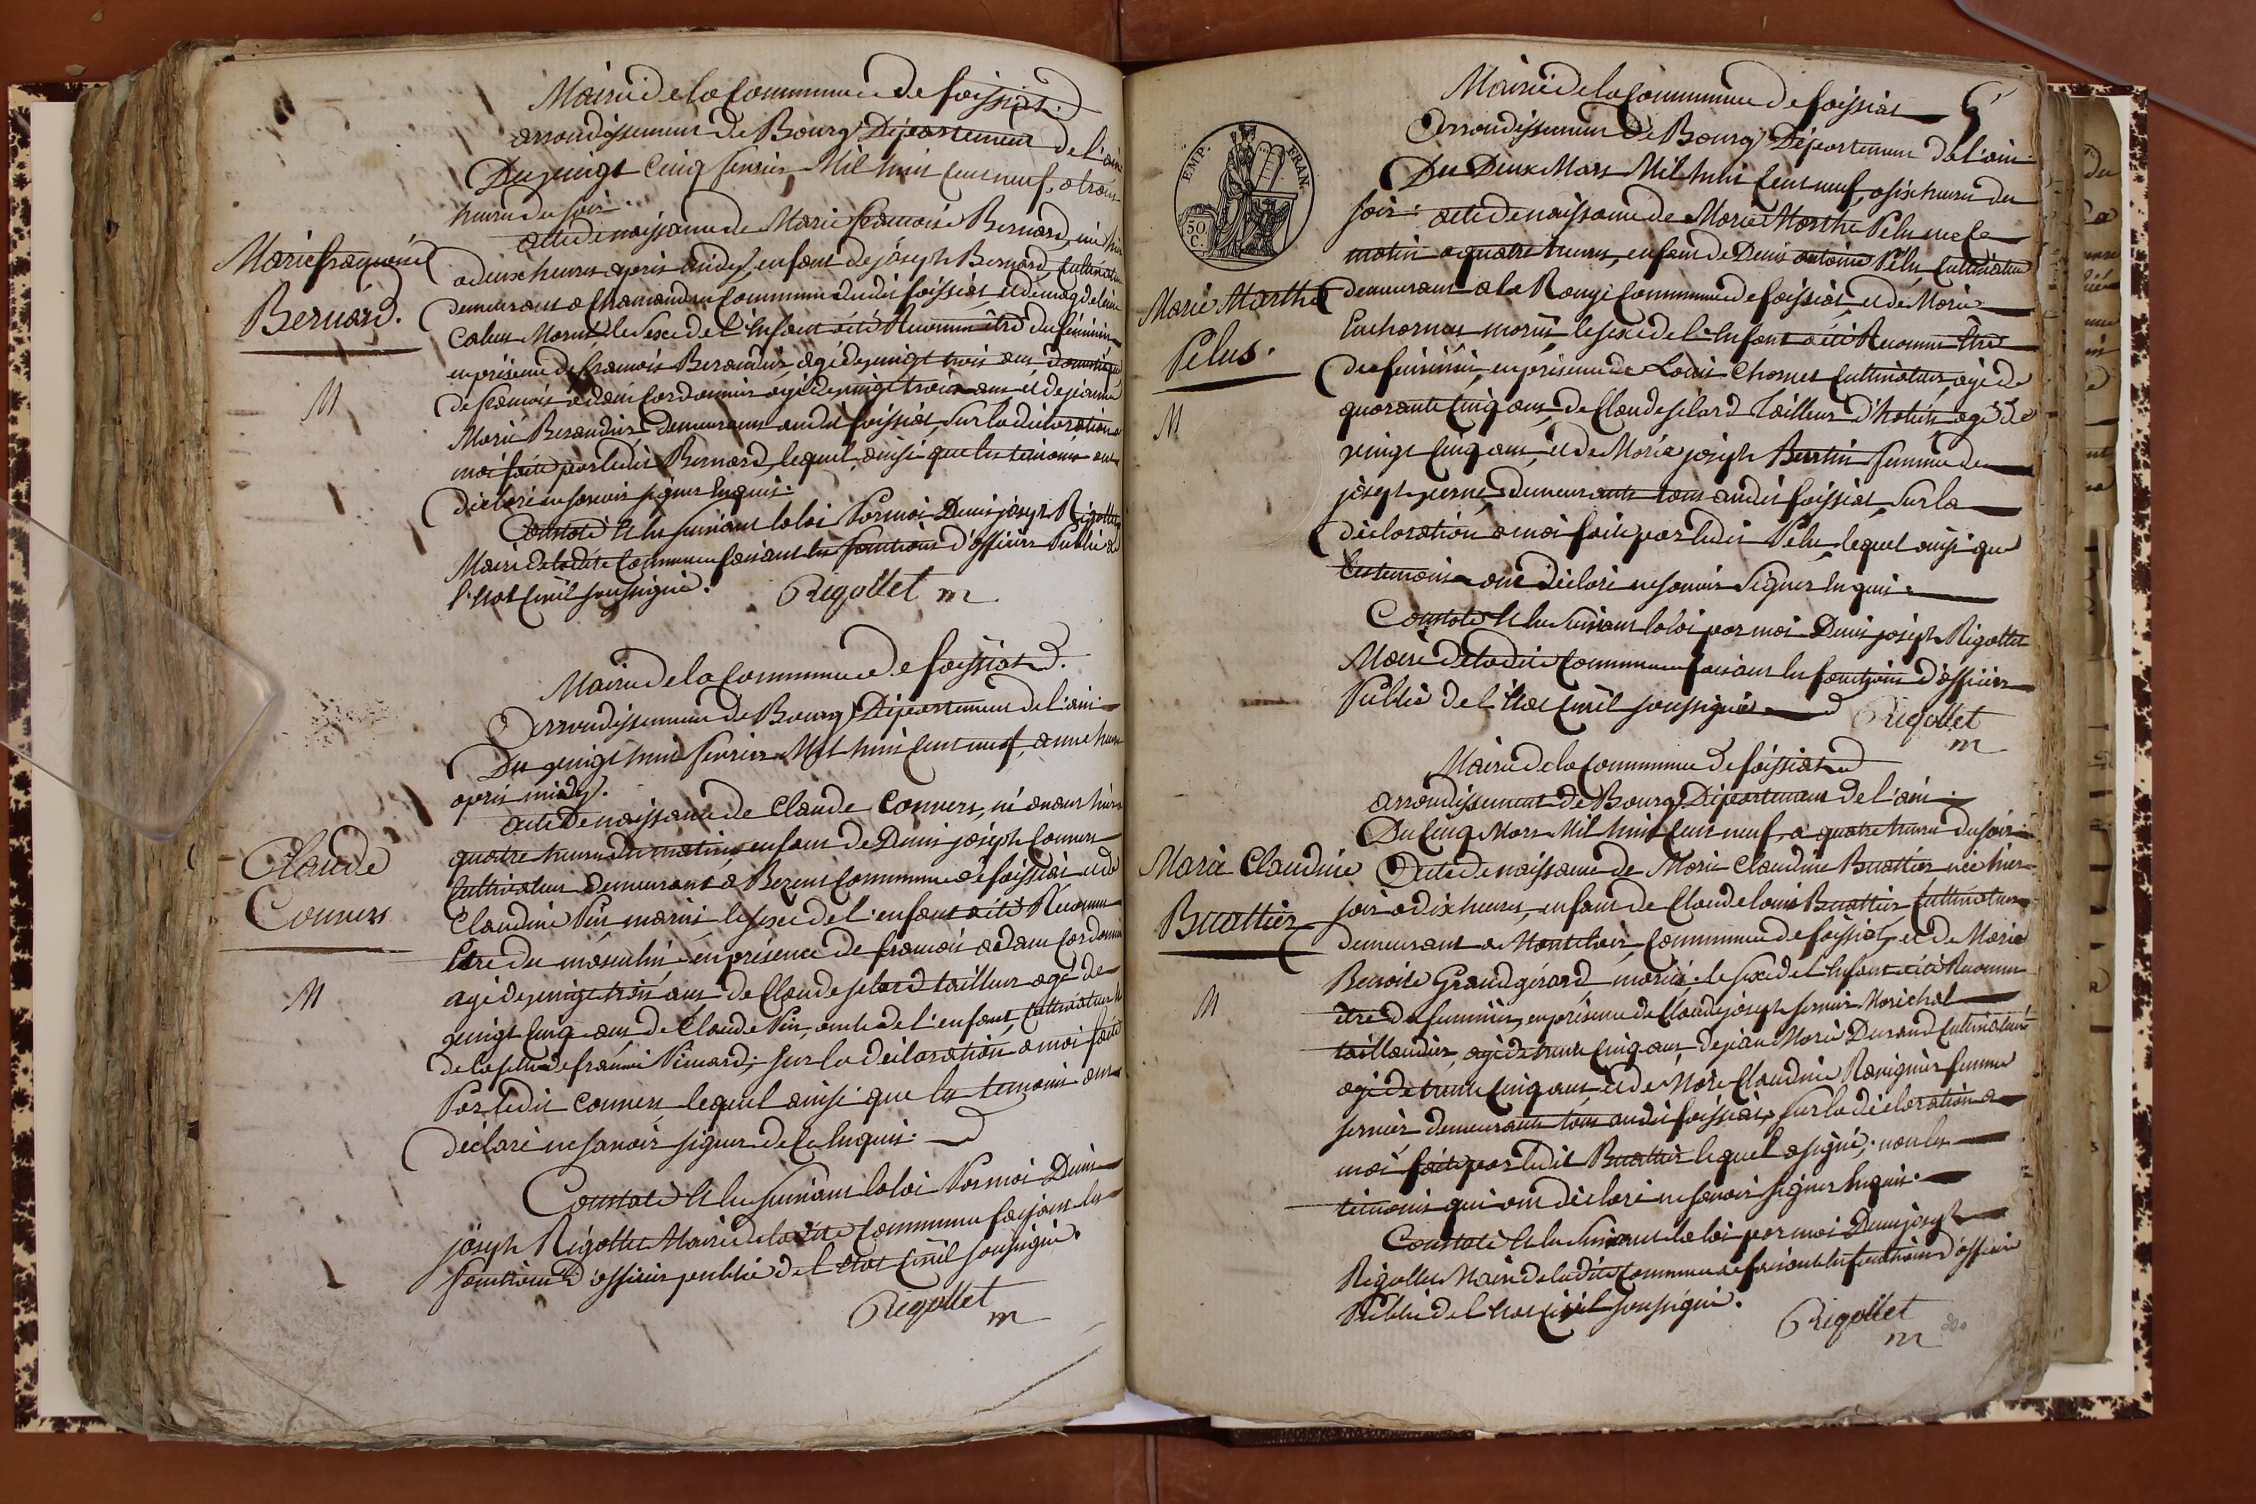 Mairie de la Commune de foissiat.
arrondissement de Bourg Département de l'ain
Du vingt Cinq fevrier Mil huit Cent neuf, a trois
heures du soir.
acte de naissance de Marie françoise Bernard, née hier
a deux heures apres midy, enfant de joseph Bernard, Cultivateur
demeurant a Commune dudit foissiat et de magdelaine
Marie françoise
Bernard.
Mariés le sexe de l'Enfant a été Reconnu être du féminin
en présence de francois Beraudier agé de vingt trois ans domestique
de francois adam Cordonnier agé de vingt trois ans et de jeanne
M
Marie Beraudier demeurans audit foissiat, Sur la déclaration a
moi faite par ledit Bernard, lequel, ainsi que les témoins ont
déclaré ne savoir signer Enquis.
Constaté Et lu suivant la loi Par moi Denis joseph Rigollet
Maire de ladite Commune faisant les fonctions d'officier Public de
l'Etat Civil soussigné. Rigollet m
Mairie de la Commune de foissiat.
Arrondissement de Bourg Département de l'ain
Du vingt huit fevrier Mil huit Cent neuf, a une heure
apres midy.
acte de naissance de Claude Convers, né avant hier
quatre heures du matin enfant de Denis joseph Convers
Cultivateur demeurant a Commune de foissiat et de
Claude
Convers
Claudine Pin mariés, le sexe de l'enfant a été Reconnu
Etre du masculin en présence de francois adam Cordonnier
agé de vingt trois ans de Claude jelard tailleur agé de
M
vingt Cinq ans de Claude Pin, oncle de l'enfant, Cultivateur
Sur la déclaration a moi faite
Par ledit Convers lequel ainsi que les temoins ont
déclaré ne savoir signer de ce Enquis.
Constaté Et lu suivant la loi Par moi Denis
joseph Rigollet Maire de ladite Commune faisant les
fonctions d'officier public de l'Etat Civil soussigné.
Rigollet
m
Mairie de la Commune de foissiat
Arrondissement de Bourg Département de l'ain
EMP. FRAN.
50
C.
Du Deux Mars Mil huit Cent neuf, a six heures du
soir. acte de naissance de Marie Marthe Pelu née ce
matin a quatre heures, enfant de Denis antoine Pelu Cultivateur
Marie Marthe
Pelus.
demeurant a la Rouge Commune de foissiat, et de Marie
mariés, le sexe de l'Enfant a été Reconnu Etre
du feminin, en présence de Louis Chomet Cultivateur agé de
quarante Cinq ans, de Claude jelard Tailleur d'habits agé de
M
vingt Cinq ans, et de Marie joseph femme de
joseph demeurants tous audit foissiat, Sur la
déclaration a moi faite par ledit Pelu, lequel ainsi que
les temoins ont déclaré ne savoir Signer Enquis.
Constaté Et lu Suivant la loi par moi Denis joseph Rigollet
Maire de ladite Commune faisant les fonctions d'officier
Public de l'Etat Civil soussigné Rigollet
m
Mairie de la Commune de foissiat
arrondissement de Bourg Département de l'ain.
Du Cinq Mars Mil huit Cent neuf, a quatre heures du soir
Marie Claudine
Buattier
Acte de naissance de Marie Claudine Buattier née hier
soir a dix heures, enfant de Claude louis Buattier Cultivateur
demeurant a Commune de foissiat, et de Marie
Benoite Grandgérard mariés le sexe de l'Enfant a été Reconnu
M
être du feminin, en présence de Claude joseph fernier Marichal
taillandier, agé de trente Cinq ans, de jean Marie Durand Cultivateur
agé de trente Cinq ans et de Marie Claudine femme
fernier demeurants tous audit foissiat, Sur la déclaration a
moi faite par ledit Buattier lequel a signé, non les
témoins qui ont déclaré ne savoir signer Enquis.
Constaté Et lu Suivant la loi par moi Denis joseph
Rigollet Maire de ladite Commune faisant les fonctions d'officier
Public de l'Etat Civil soussigné. Rigollet
m